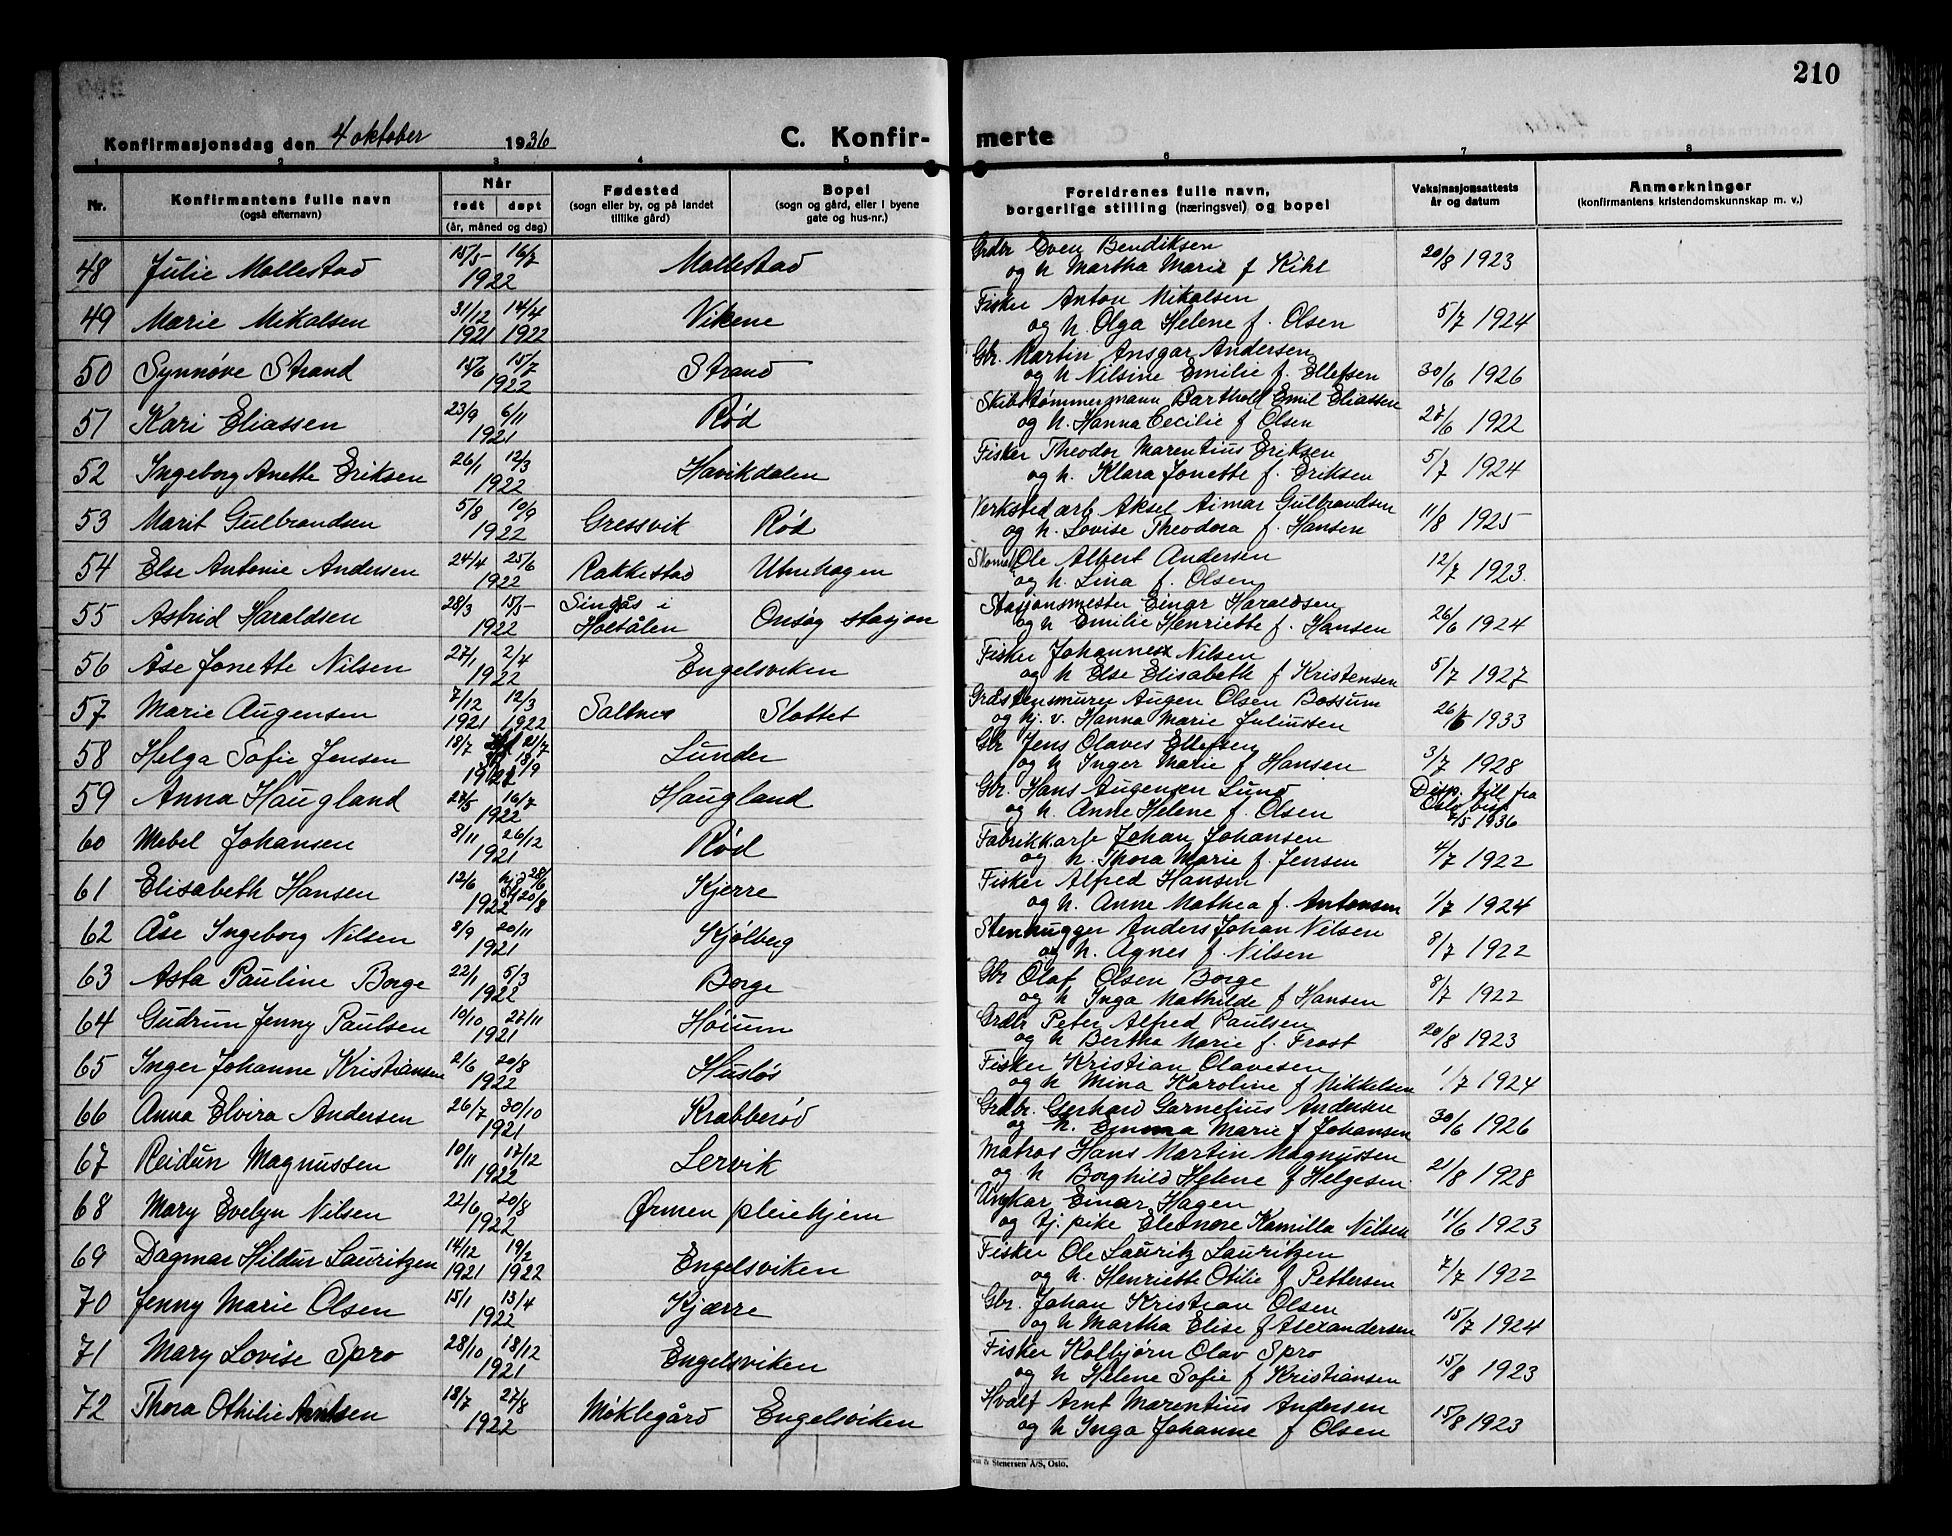 210
Konfirmasjonsdag den 4 oktober 1936
C. Konfir- merte
1 2 3 4 5 6 7 8
Nr.
Konfirmantens fulle navn
(også efternavn)
Når
født døpt
(år, måned og dag)
Fødested
(sogn eller by, og på landet
tillike gård)
Bopel
(sogn og gård, eller i byene
gate og hus-nr.)
Foreldrenes fulle navn,
borgerlige stilling (næringsvei) og bopel
Vaksinasjonsattests
år og datum
Anmerkninger
(konfirmantens kristendomskunnskap m. v.)
48 Julie Mollestad 15/5 16/7 1922 Mollestad Grdbr Even Bendiksen
og h Martha Marie f Kihl 20/8 1923
49 Marie Mikalsen 31/12 1921 14/4 1922 Vikene Fisker Anton Mikalsen
og h. Olga Helene f. Olsen 5/7 1924
50 Synnøve Strand 15/7 1922 Strand Gbr. Martin Ansgar Andersen
og h Nilsine Emilie f. Ellefsen 30/6 1926
51 Kari Eliassen 23/9 6/11 1921 Rød Skibstømmermann Barthold Emil Eliassen
og h. Hanna Cecilie f Olsen 27/6 1922
52 Ingeborg Anette Eriksen 26/1 12/3 1922 Havikdalen Fisker Theodor Marentius Eriksen
og h. Klara Jonette f. Eriksen 5/7 1924
53 Marit Gulbrandsen 5/8 10/9 1922 Gressvik Rød Verksted arb Aksel Aimar Gulbrandsen
og h. Lovise Theodora f. Hansen 11/8 1925
54 Else Antonie Andersen 24/4 25/6 1922 Rakkestad Utnehagen Skom. Ole Albert Andersen
og h. Lina f. Olsen 12/7 1923.
55 Astrid Haraldsen 28/3 15/5 1922 Singsås i
Holtålen Onsøy stasjon Stasjonsmester Einar Haraldsen
og h Emilie Henriette f. Hansen 26/6 1924
56 Åse Jonette Nilsen 27/1 2/4 1922 Engelsviken Fisker Johannes Nilsen
og h Else Elisabeth f Kristensen 5/7 1927
57 Marie Augensen 7/12 1921 12/3 1922 Saltnes Slottet Gråstensmurer Augen Olsen Bossum
og hj. v. Hanna Marie Juliussen 1933
58 Helga Sofie Jensen 18/7 21/7 1922 Lunder Gbr Jens Olaves Ellefsen
og h Inger Marie f Hansen 3/7 1928
59 Anna Haugland 27/5 16/7 1922 Haugland Gbr. Hans Augensen Lund
og h. Anne Helene f. Olsen Disp. till. fra
Oslo bisp
7/5 1936
60 Mabel Johansen 8/11 26/12 1921 Rød Fabrikkarb Johan Johansen
og h. Thora Marie f. Jensen 4/7 1922
61 Elisabeth Hansen 12/6 hj d 28/6 20/8 1922 Kjerre Fisker Alfred Hansen
og h. Anne Mathea f. Antonsen 1/7 1924
62 Åse Ingeborg Nilsen 8/9 20/11 1921 Kjølberg Stenhugger Anders Johan Nilsen
og h. Agnes f. Nilsen 8/7 1922
63 Asta Pauline Borge 22/1 5/3 1922 Borge Gbr Olaf Olsen Borge
og h Inga Mathilde f Hansen 8/7 1922
64 Gudrun Jenny Paulsen 10/10 27/11 1921 Høium Grdbr Peter Alfred Paulsen
og h Bertha Marie f. Frost 20/8 1923
65 Inger Johanne Kristiansen 2/6 20/8 1922 Husløs Fisker Kristian Olavesen
og h Mina Karoline f Mikkelsen 1/7 1924
66 Anna Elvira Andersen 26/7 30/10 1921 Krabberød Grdbr. Gerhard Garnelius Andersen
og h. Emma Marie f Johansen 30/6 1926
67 Reidun Magnussen 10/11 17/12 1922 Lervik Matros Hans Martin Magnussen
og h Borghild Helene f Helgesen 21/8 1928
68 Mary Evelyn Nilsen 22/6 20/8 1922 Ørmen pleiehjem Ungkar Einar Hagen
og tj. pike Eleonore Kamilla Nilsen 11/6 1923
69 Dagmar Hildur Lauritzen 14/12 1921 19/2 1922 Engelsviken Fisker Ole Lauritz Lauritzen
og h. Henriette Otilie f Pettersen 7/7 1922
70 Jenny Marie Olsen 15/1 13/4 1922 Kjærre Gbr. Johan Kristian Olsen
og h Martha Elise f Alexandersen 15/7 1924
71 Mary Lovise Spro 28/10 18/12 1921 Engelsviken Fisker Kolbjørn Olav Spro
og h Helene Sofie f Kristiansen 15/8 1923
72 Thora Othilie Arntsen 18/7 27/8 1922 Møklegård Engelsviken Hvalf Arnt Marentius Andersen
og h Inga Johanne f Olsen 15/8 1923
& Stenersen A/S, Oslo.